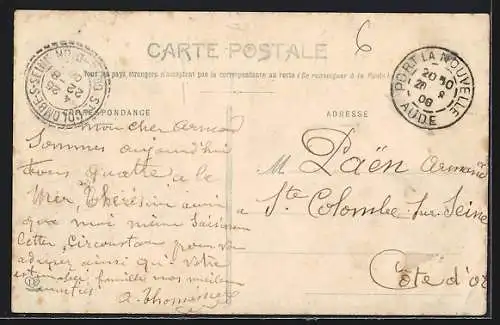 CARTE POSTALE
6
Tous les pays étrangers n'acceptent pas la correspondance au recto (Se renseigner à la Poste)
CORRESPONDANCE
ADRESSE
STE COLOMBE-S-SEINE
PORT LA NOUVELLE
20 30
28 8
08
AUDE
mon cher Armand
Sommes aujourd'hui
tous quatre a la
Mer, Thérésine ainsi
que moi même Saisissons
Cette circonstance pour vous
adresser ainsi qu'a votre
estimable famille nos meilleures
amitiés
a. Thomesse
M Païen Armand
a Ste Colombe sur Seine
Côte d'or